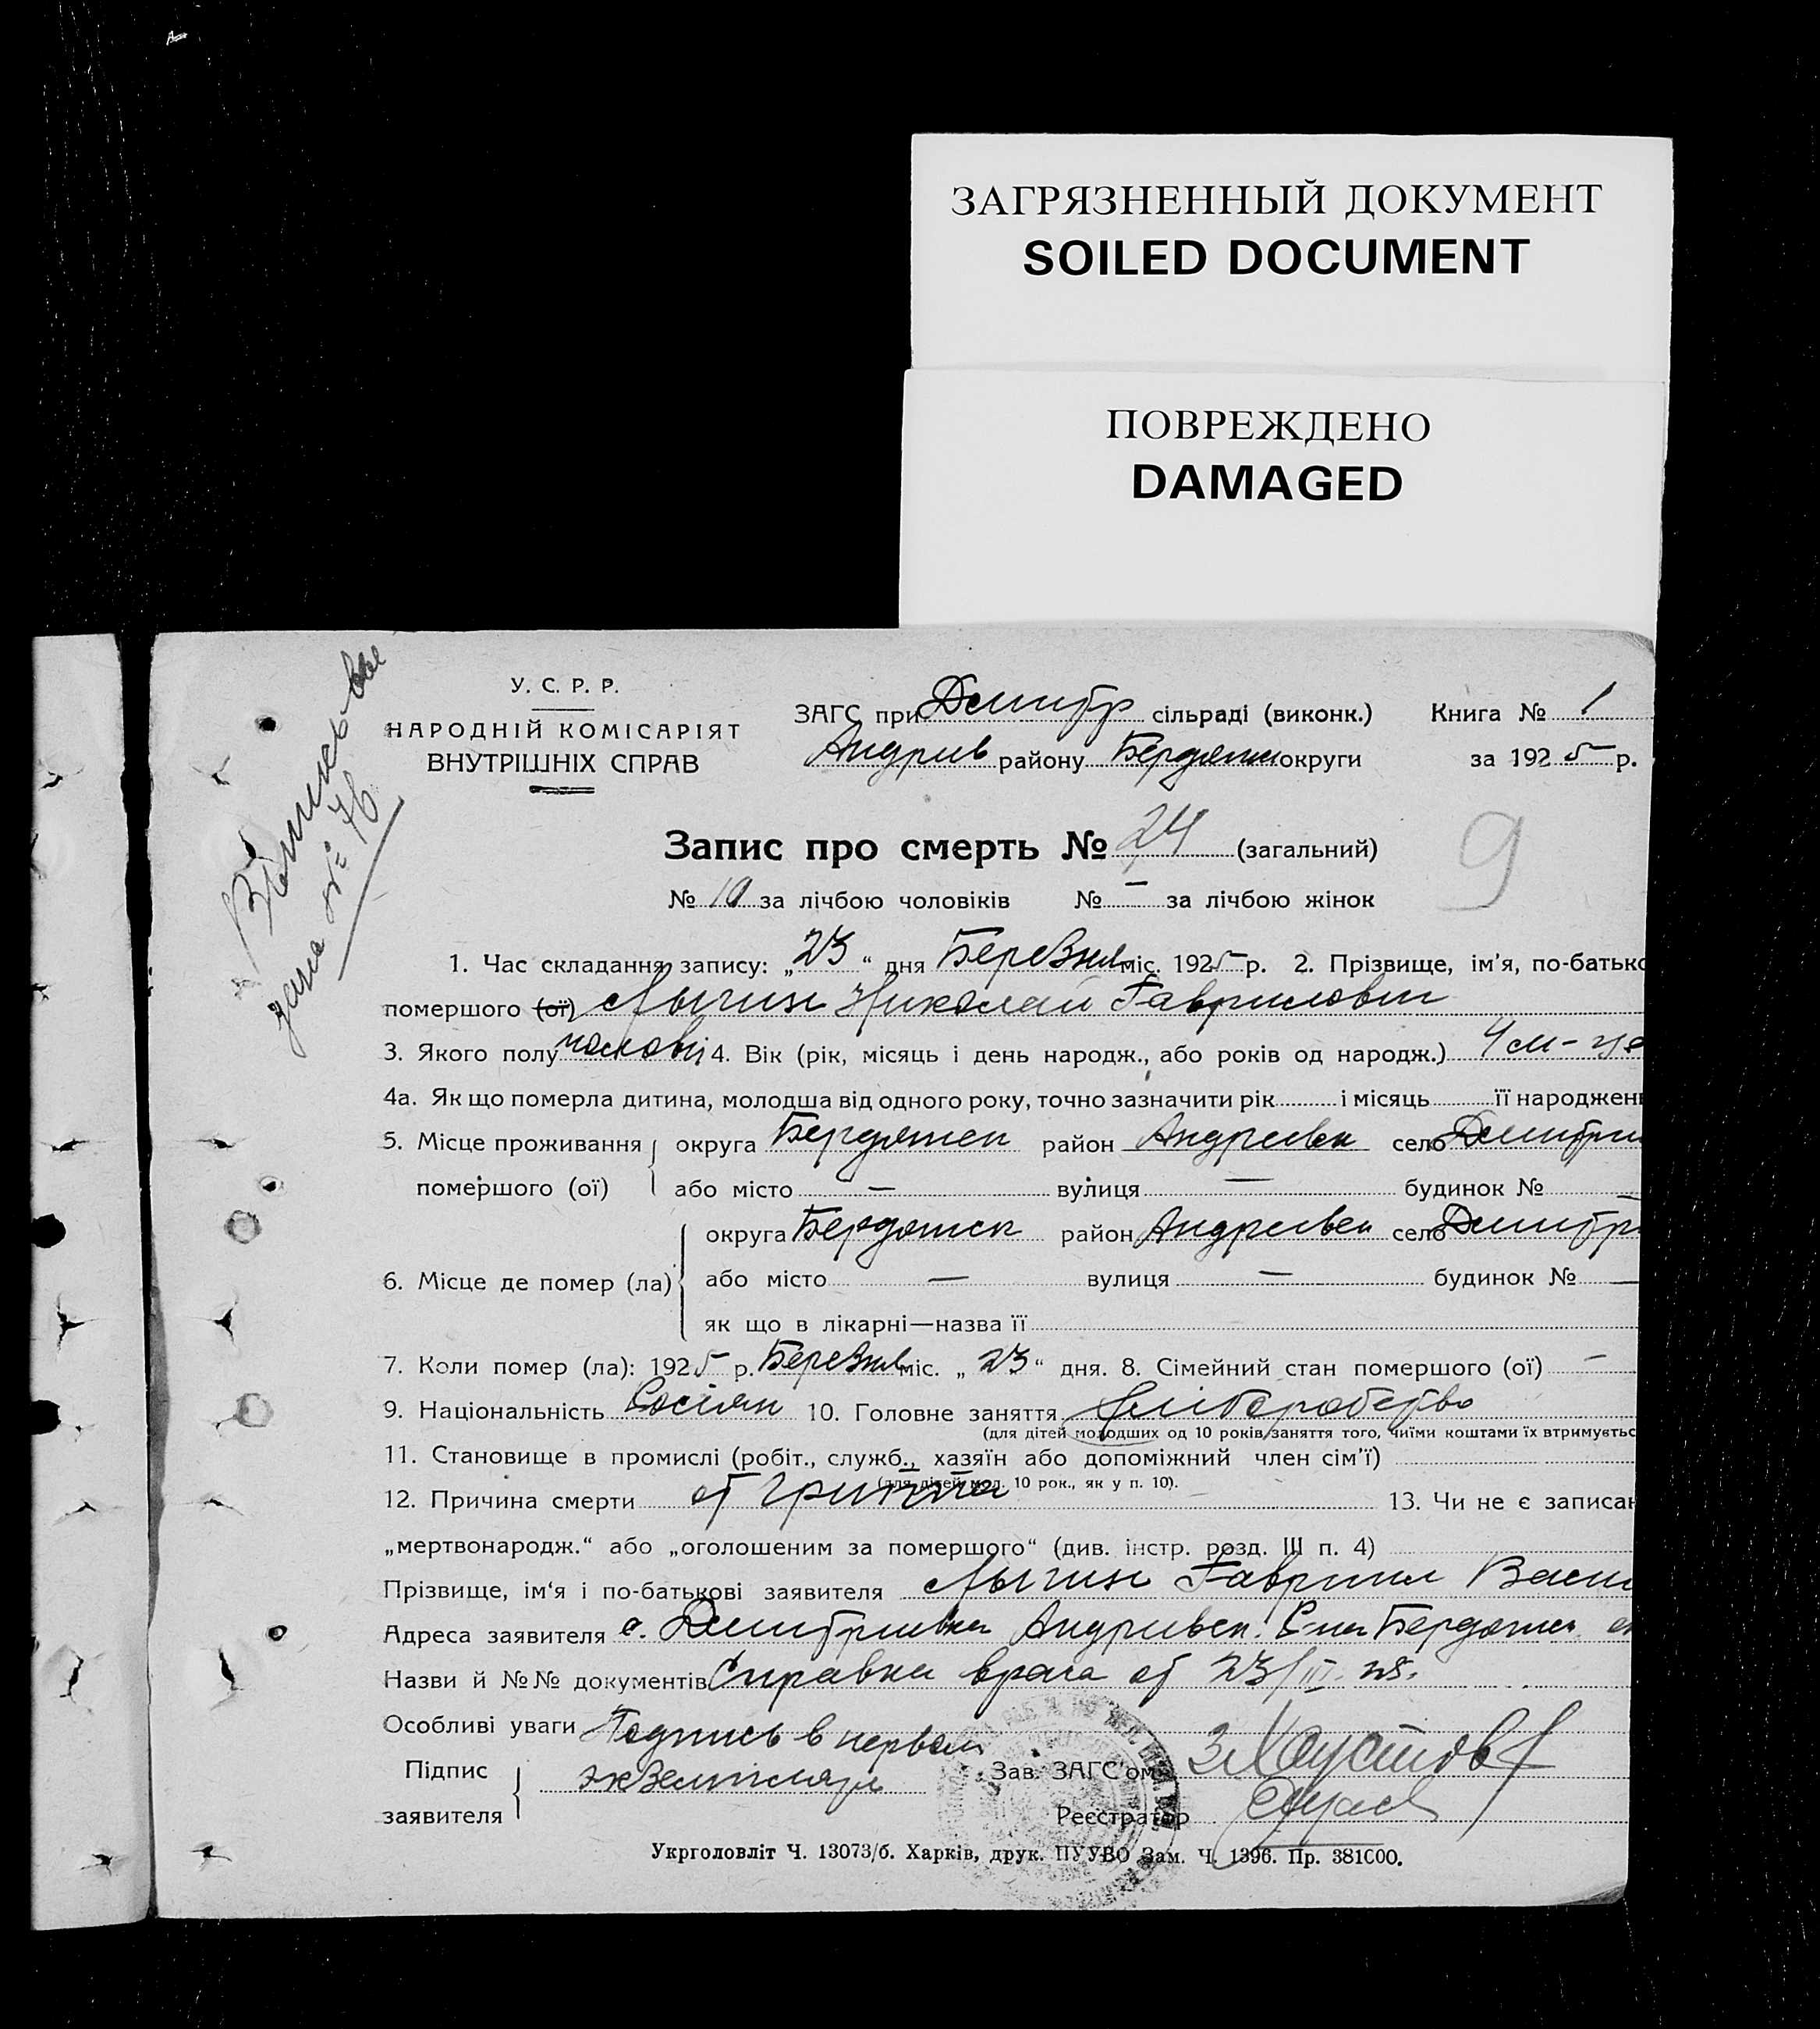 ЗАГРЯЗНЕННЫЙ ДОКУМЕНТ
SOILED DOCUMENT
ПОВРЕЖДЕНО
DAMAGED
Выпись вы
дана № 76
У. С. Р. Р.
НАРОДНІЙ КОМІСАРІЯТ
ВНУТРІШНІХ СПРАВ
ЗАГС при Дмитр сільраді (виконк.) Книга № 1
Андрив району Бердянск округи за 1925 р.
Запис про смерть № 24 (загальний)
9
№ 10 за лічбою чоловіків № – за лічбою жінок
1. Час складання запису: „23“ дня Березня міс. 1925 р. 2. Прізвище, ім'я, по-батько
помершого (ої) Лыгин Николай Гаврилович
3. Якого полу 4. Вік (рік, місяць і день народж., або років од народж.) 4 м-ця
4а. Як що померла дитина, молодша від одного року, точно зазначити рік і місяць її народжен
5. Місце проживання округа Бердянск район Андриевск село Дмитри
помершого (ої) або місто — вулиця — будинок №
округа Бердянск район Андриевск село Дмитр
6. Місце де помер (ла) або місто — вулиця — будинок № —
як що в лікарні—назва її
7. Коли помер (ла): 1925 р. Березня міс. „23“ дня. 8. Сімейний стан помершого (ої) —
9. Національність Росіян 10. Головне заняття хліборобство
(для дітей молодших од 10 років заняття того, чиїми коштами їх втримуєтьс
11. Становище в промислі (робіт., служб., хазяїн або допоміжний член сім'ї)
(для дітей мол. 10 рок., як у п. 10).
12. Причина смерти от гриппа 13. Чи не є записан
„мертвонародж.“ або „оголошеним за помершого“ (див. інстр. розд. III п. 4)
Прізвище, ім'я і по-батькові заявителя Лыгин Гавриил Васи
Адреса заявителя с. Дмитриевка Андриевск. Р-на Бердянск о
Назви й №№ документів Справка врача от 23/III 25.
Особливі уваги Подпись в первом
Підпис заявителя экземпляре
Зав. ЗАГС'ом Хаустов
Реєстратор
Укрголовліт Ч. 13073/б. Харків, друк. ПУУВО Зам. Ч. 1396. Пр. 381000.